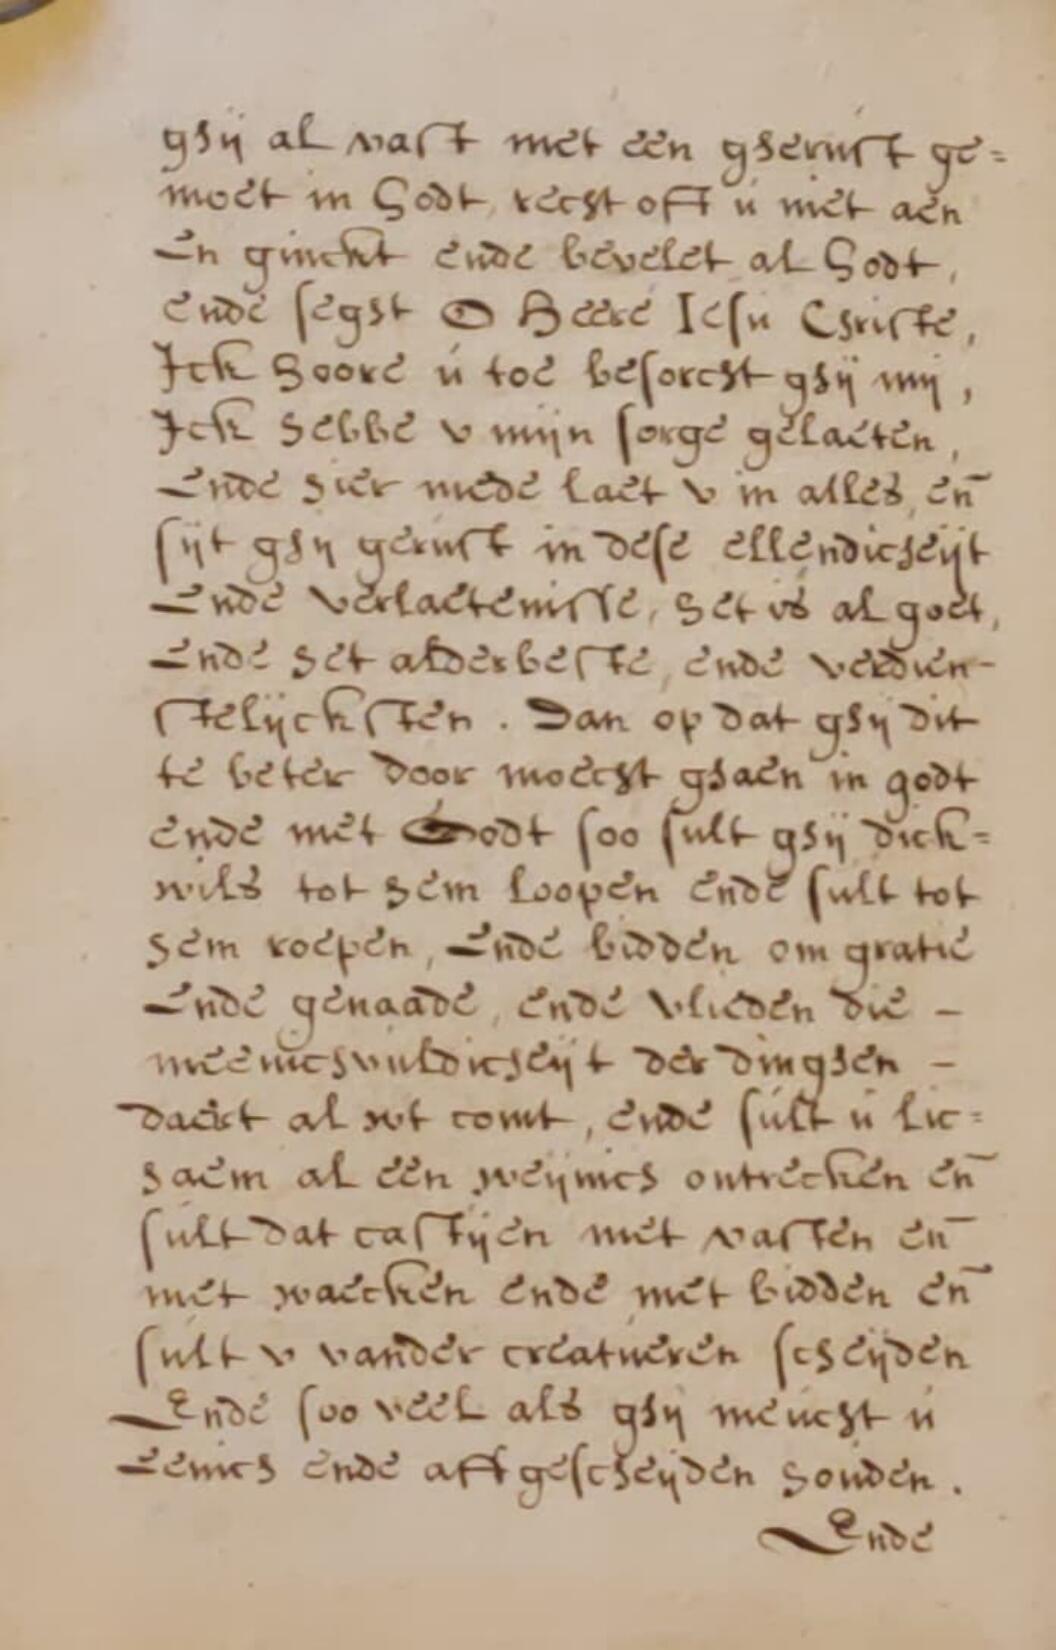 ghij al vast met een gherust ge=
moet in Godt, recht off ú niet aen
En ginckt ende bevelet al Godt,
ende segst O Heere Iesu Christe,
Ick hoore ú toe besorcht ghij mij,
Ick hebbe v mijn sorge gelaeten,
Ende hier mede laet v in alles, en̄
sijt ghij gerust in dese ellendicheijt
Ende verlaetenisse, het is al goet,
Ende het alderbeste, ende verdien-
stelijcksten. Dan op dat ghij dit
te beter door moecht ghaen in godt
ende met Godt soo sult ghij dick=
wils tot hem loopen ende sult tot
hem roepen, Ende bidden om gratie
Ende genaade, ende vlieden die -
meenichvuldicheijt der dinghen -
daert al wt comt, ende súlt ú lic=
haem al een weijnich ontrecken en̄
súlt dat castijen met vasten en̄
met waecken ende met bidden en̄
sult v vander creatueren scheijden
Ende soo veel als ghij meúcht ú
Eenich ende affgescheijden houden.
Ende